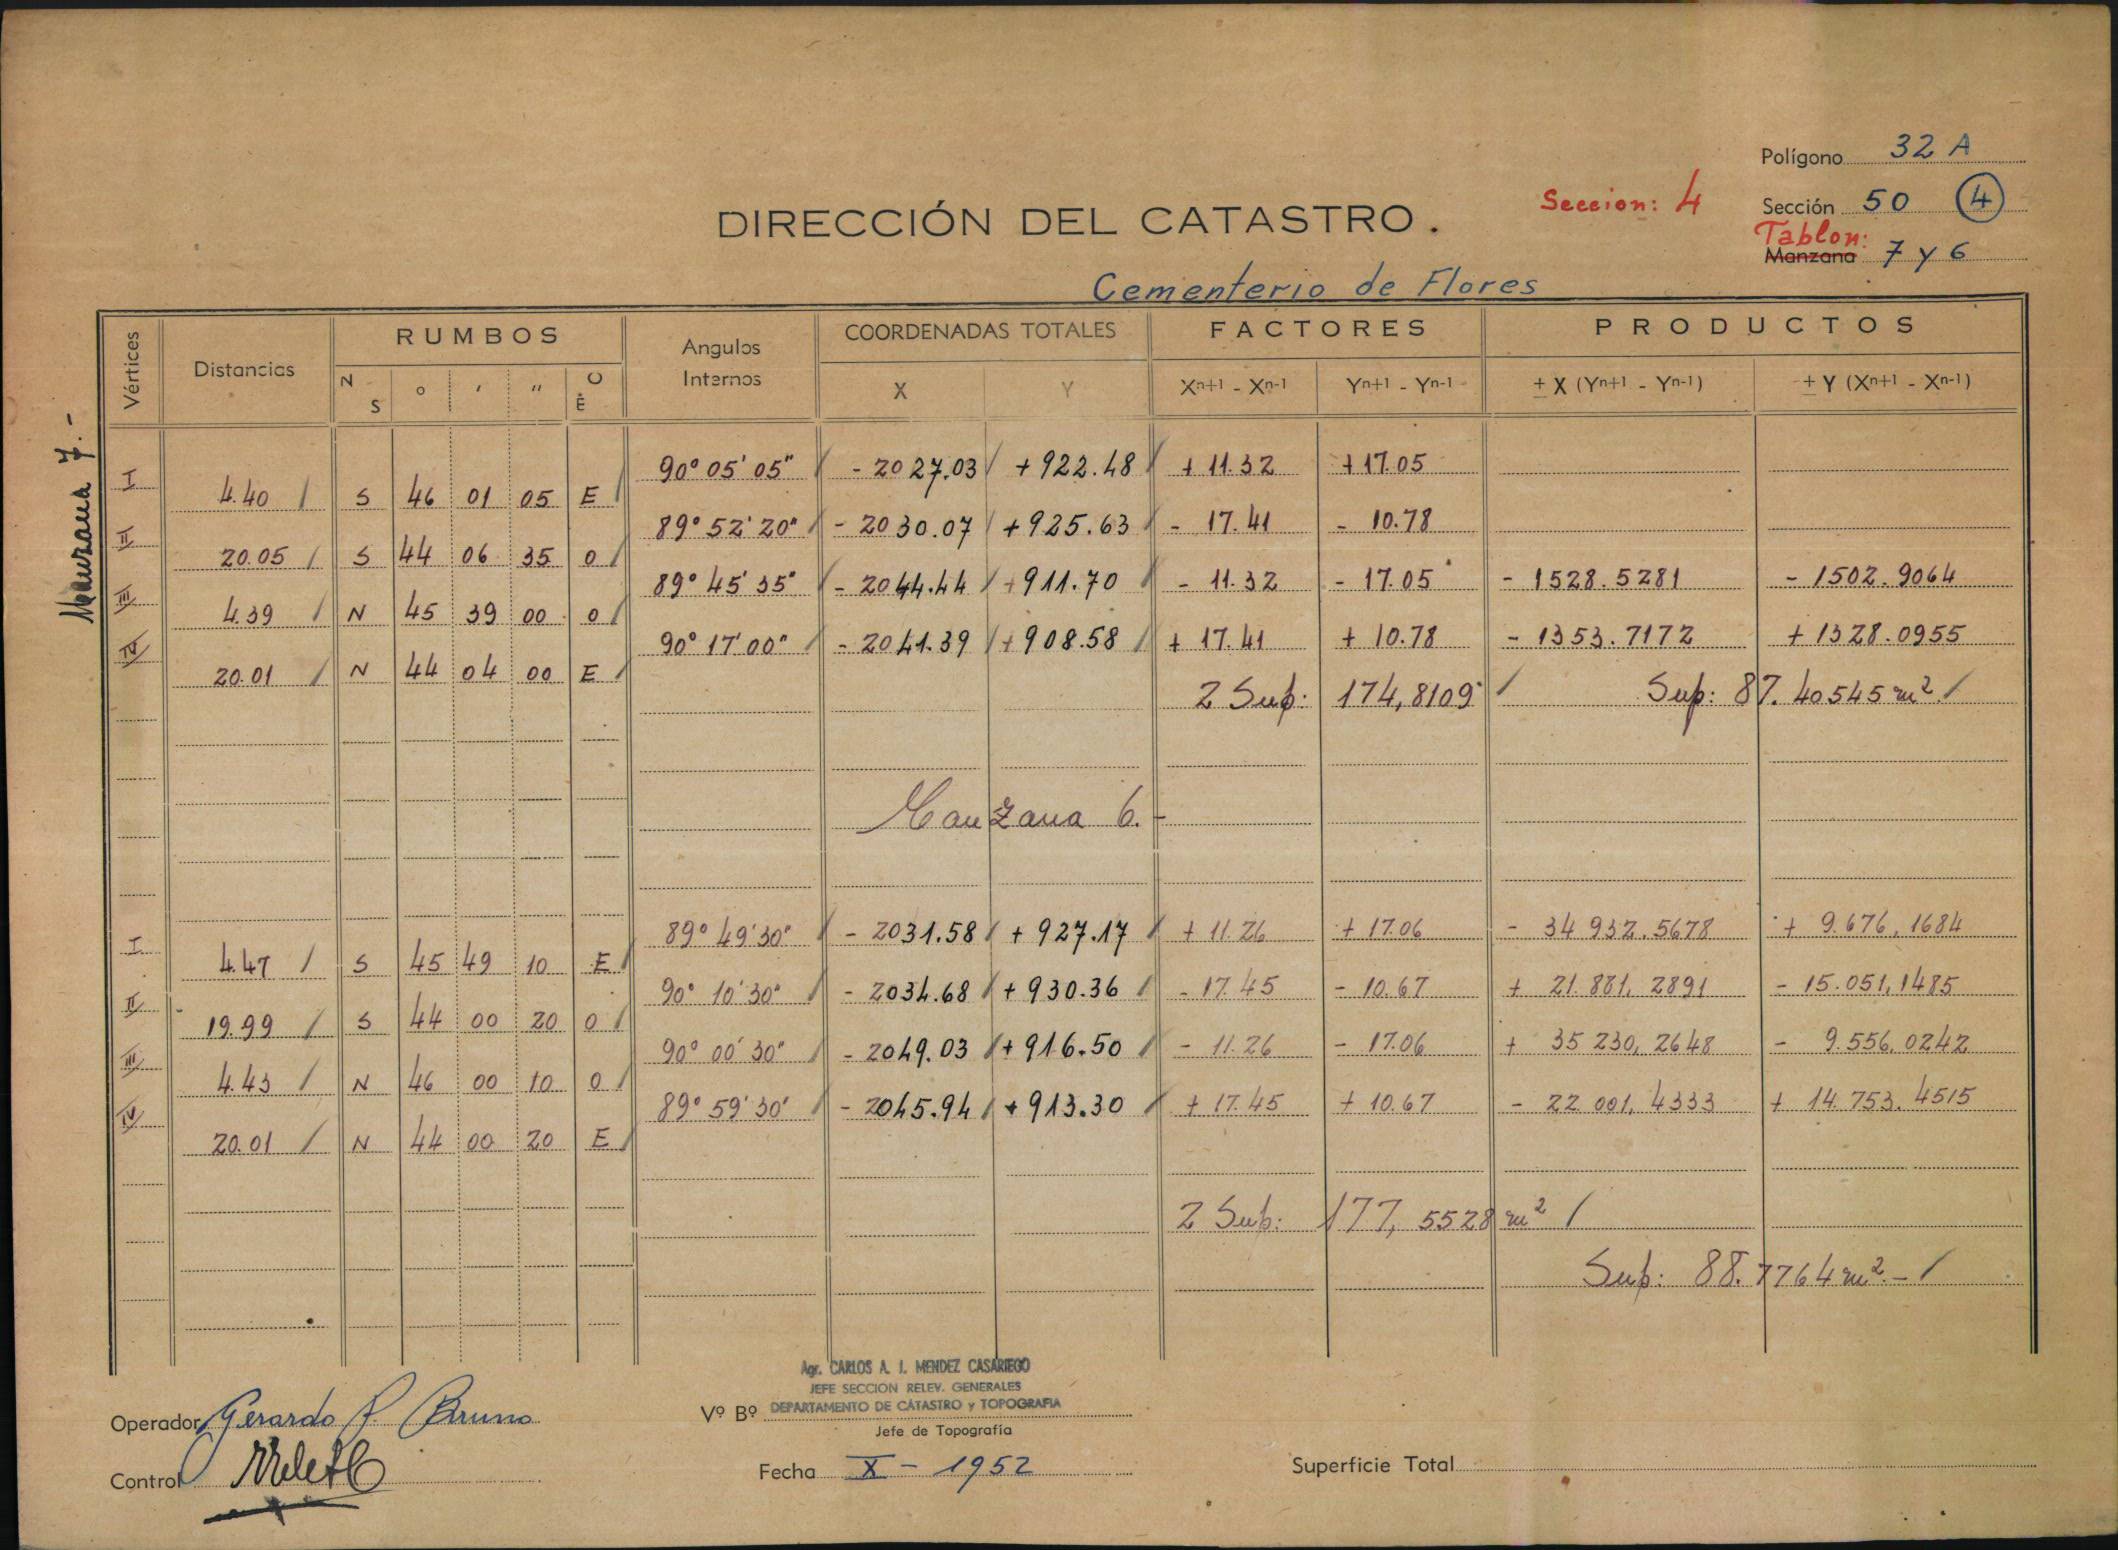 Polígono 32 A
Seccion: 4
Sección 50 4
DIRECCIÓN DEL CATASTRO.
Tablon:
Manzana 7 y 6
Cementerio de Flores
Vértices Distancias RUMBOS Angulos Internos COORDENADAS TOTALES FACTORES PRODUCTOS
N S ° ' " O E X Y Xⁿ⁺¹ - Xⁿ⁻¹ Yⁿ⁺¹ - Yⁿ⁻¹ ± X (Yⁿ⁺¹ - Yⁿ⁻¹) ± Y (Xⁿ⁺¹ - Xⁿ⁻¹)
Manzana 7.-
I 90° 05' 05" - 2027.03 + 922.48 + 11.32 + 17.05
4.40 S 46 01 05 E
II 89° 52' 20" - 2030.07 + 925.63 - 17.41 - 10.78
20.05 S 44 06 35 O
III 89° 45' 35" - 2044.44 + 911.70 - 11.32 - 17.05 - 1528.5281 - 1502.9064
4.39 N 45 39 00 O
IV 90° 17' 00" - 2041.39 + 908.58 + 17.41 + 10.78 - 1353.7172 + 1328.0955
20.01 N 44 04 00 E
2 Sup: 174,8109 Sup: 87.40545 m²
Manzana 6.-
I 89° 49' 30" - 2031.58 + 927.17 + 11.26 + 17.06 - 34 932.5678 + 9.676,1684
4.47 S 45 49 10 E
II 90° 10' 30" - 2034.68 + 930.36 - 17.45 - 10.67 + 21.881,2891 - 15.051,1485
19.99 S 44 00 20 O
III 90° 00' 30" - 2049.03 + 916.50 - 11.26 - 17.06 + 35 230,2648 - 9.556,0242
4.43 N 46 00 10 O
IV 89° 59' 30" - 2045.94 + 913.30 + 17.45 + 10.67 - 22 001,4333 + 14.753.4515
20.01 N 44 00 20 E
2 Sup: 177,5528 m²
Sup: 88.7764 m².-
Agr. CARLOS A. J. MENDEZ CASARIEGO
JEFE SECCION RELEV. GENERALES
DEPARTAMENTO DE CATASTRO y TOPOGRAFIA
Operador Gerardo P. Bruno
Vº Bº
Jefe de Topografía
Control
Fecha X - 1952
Superficie Total